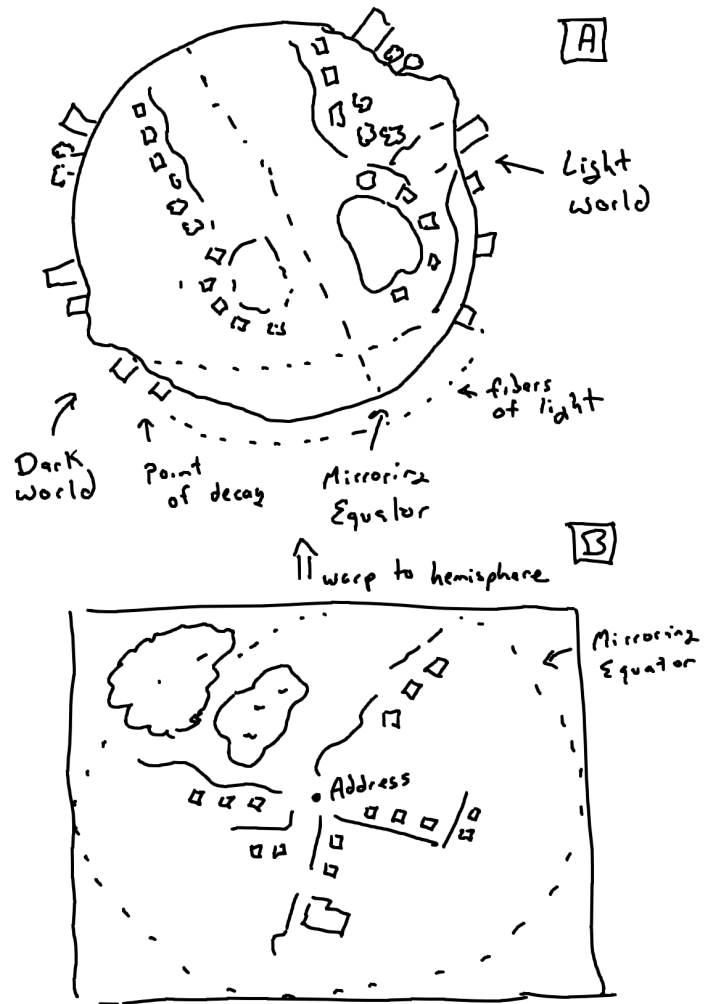 A
Light
world
fibers
of light
Dark
world
Point
of decay
Mirroring
Equator
B
warp to hemisphere
Mirroring
Equator
Address